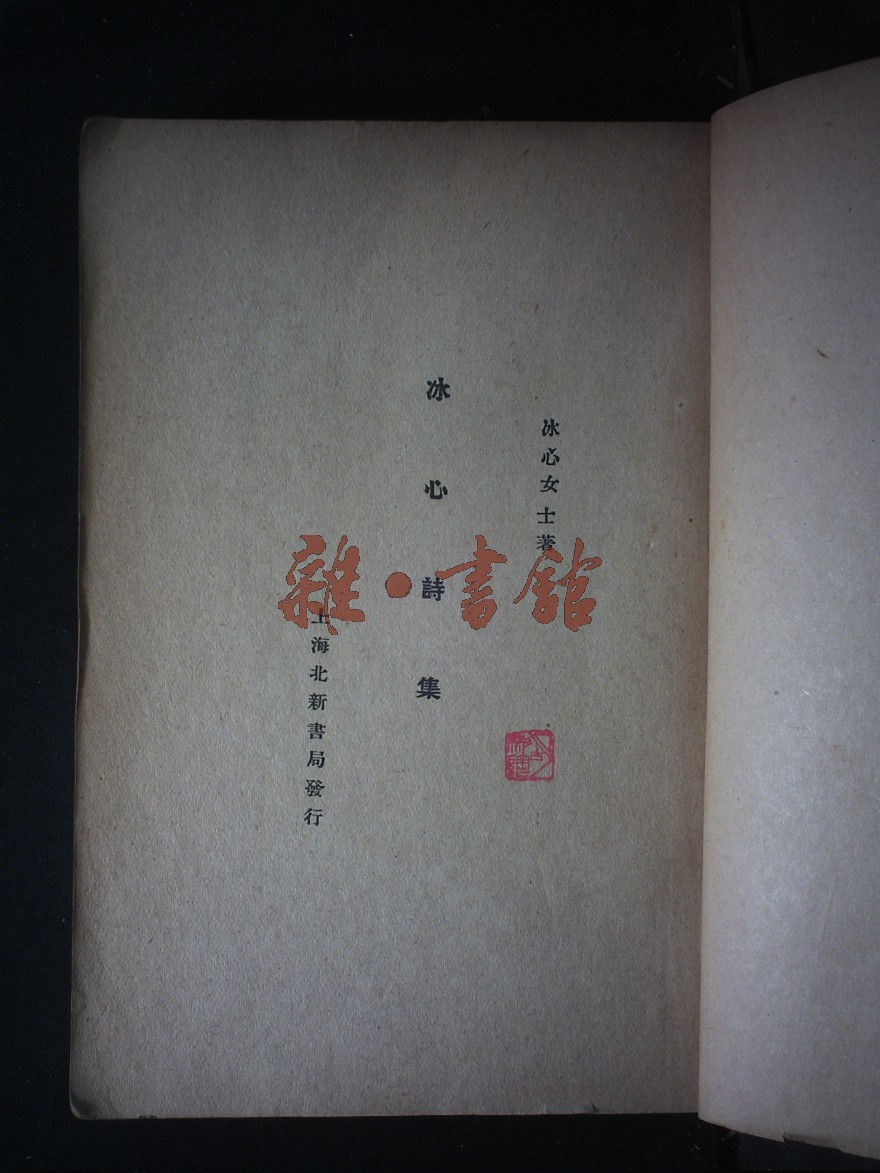 冰心女士著
冰心詩集
上海北新書局發行
雜·書館